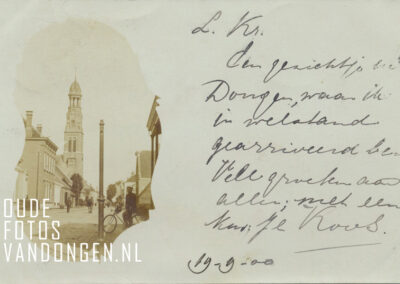 L. Kr.
Een gezichtje in
Dongen, waar ik
in welstand
gearriveerd ben
Vele groeten aan
allen; met een
kus, Je Koos.
19-9-00
OUDE
FOTOS
VANDONGEN.NL